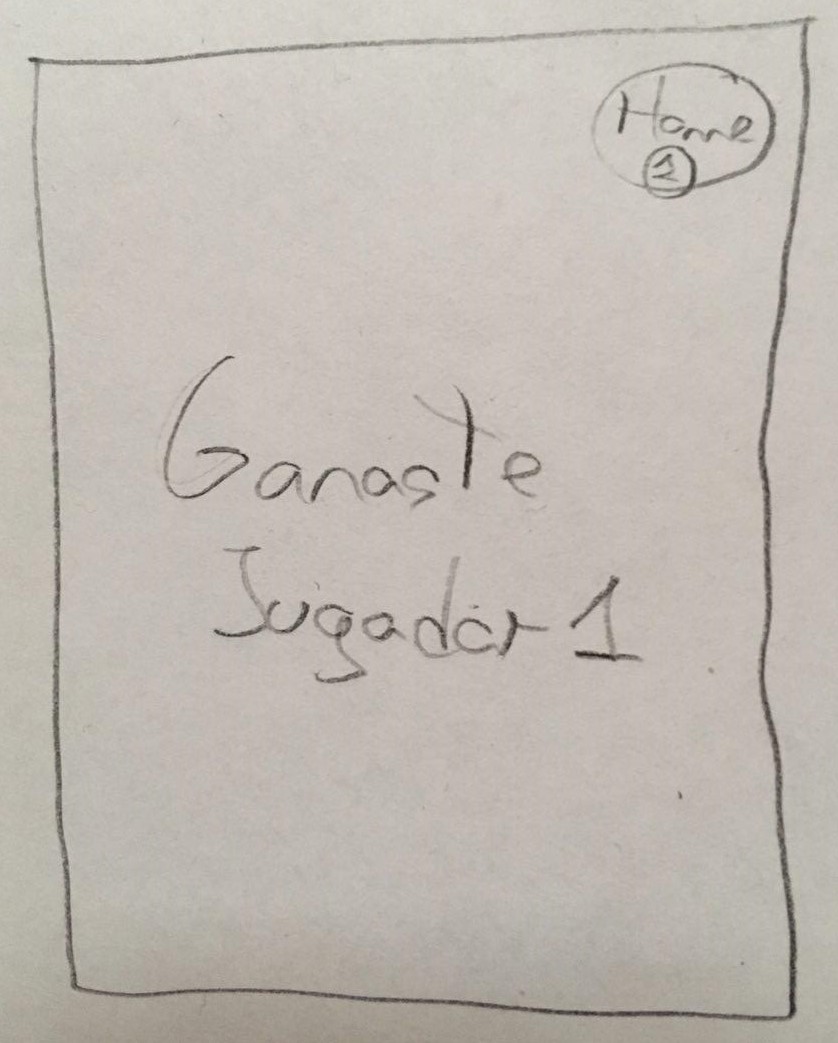 Home
1
Ganaste
Jugador 1